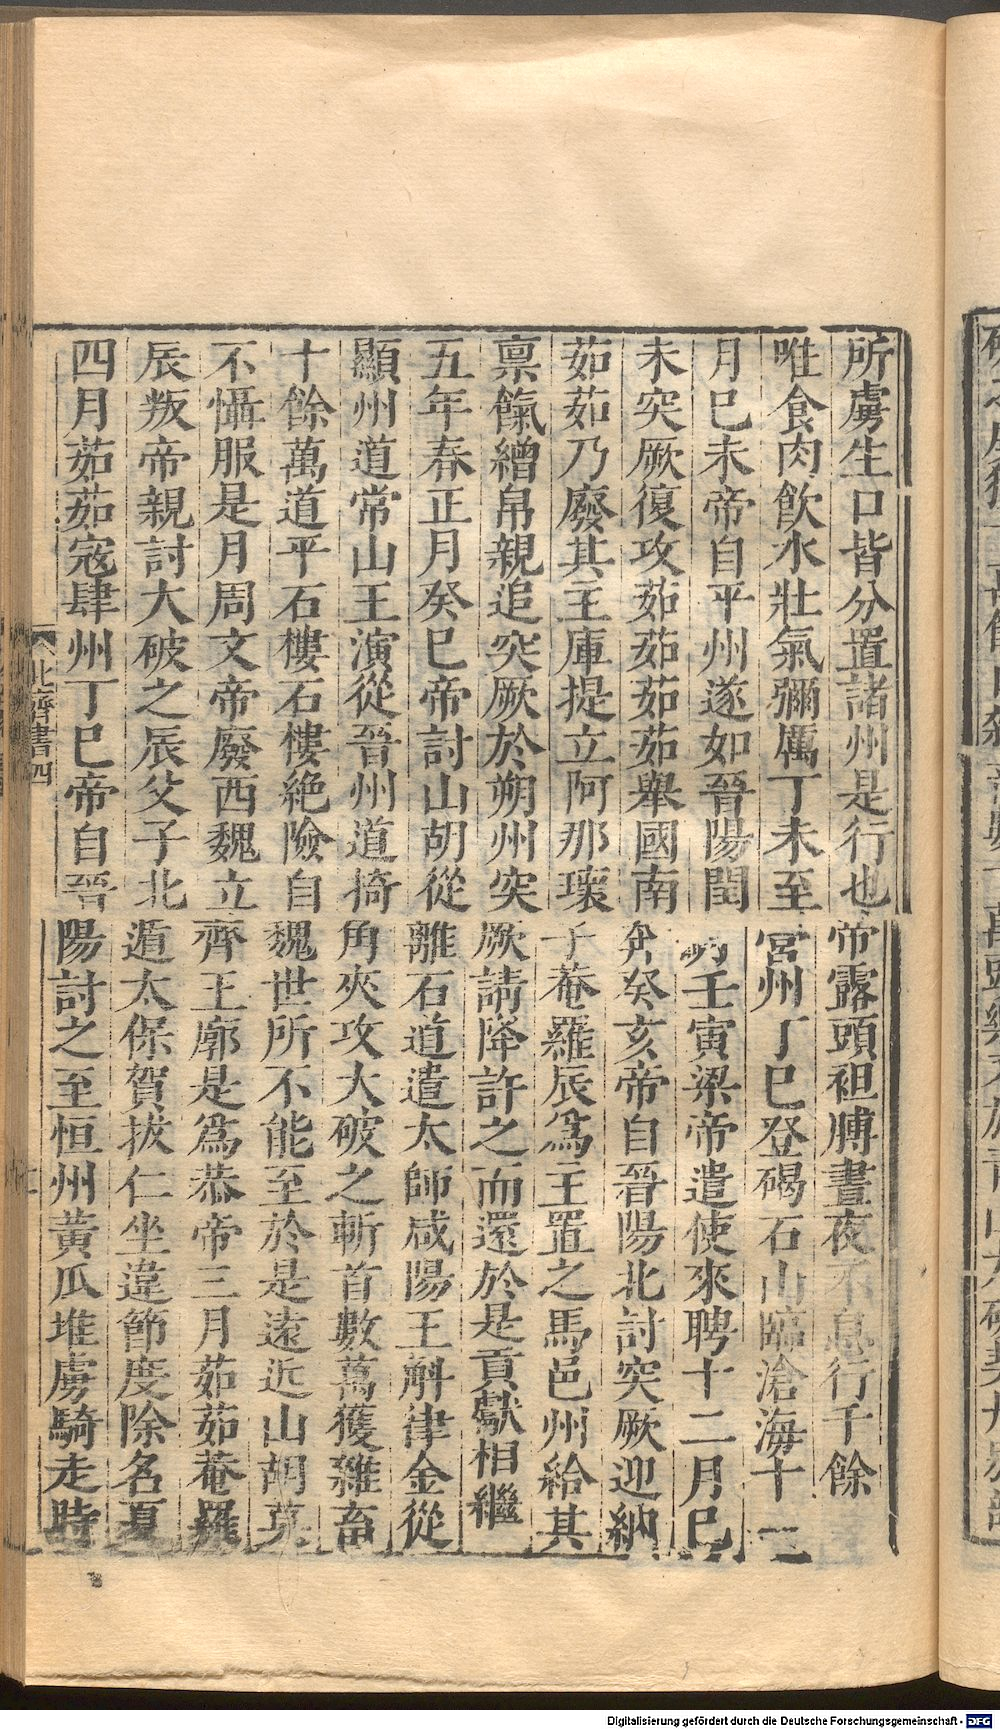 所虜生口皆分置諸州是行也帝露頭袒膊晝夜不息行千餘
唯食肉飲水壯氣彌厲丁未至營州丁巳登碣石山臨滄海十一
月巳未帝自平州遂如晉陽閏月壬寅梁帝遣使來聘十二月巳
未突厥復攻茹茹茹茹舉國南奔癸亥帝自晉陽北討突厥迎納
茹茹乃廢其主庫提立阿那瓌子菴羅辰爲主置之馬邑州給其
稟餼繒帛親追突厥於朔州突厥請降許之而還於是貢獻相繼
五年春正月癸巳帝討山胡從離石道遣太師咸陽王斛律金從
顯州道常山王演從晉州道掎角夾攻大破之斬首數萬獲雜畜
十餘萬遂平石樓石樓絶險自魏世所不能至於是遠近山胡莫
不懾服是月周文帝廢西魏立齊王廓是爲恭帝三月茹茹菴羅
辰叛帝親討大破之辰父子北遁太保賀拔仁坐違節度除名夏
四月茹茹寇肆州丁巳帝自晉陽討之至恒州黃瓜堆虜騎走時
北齊書四